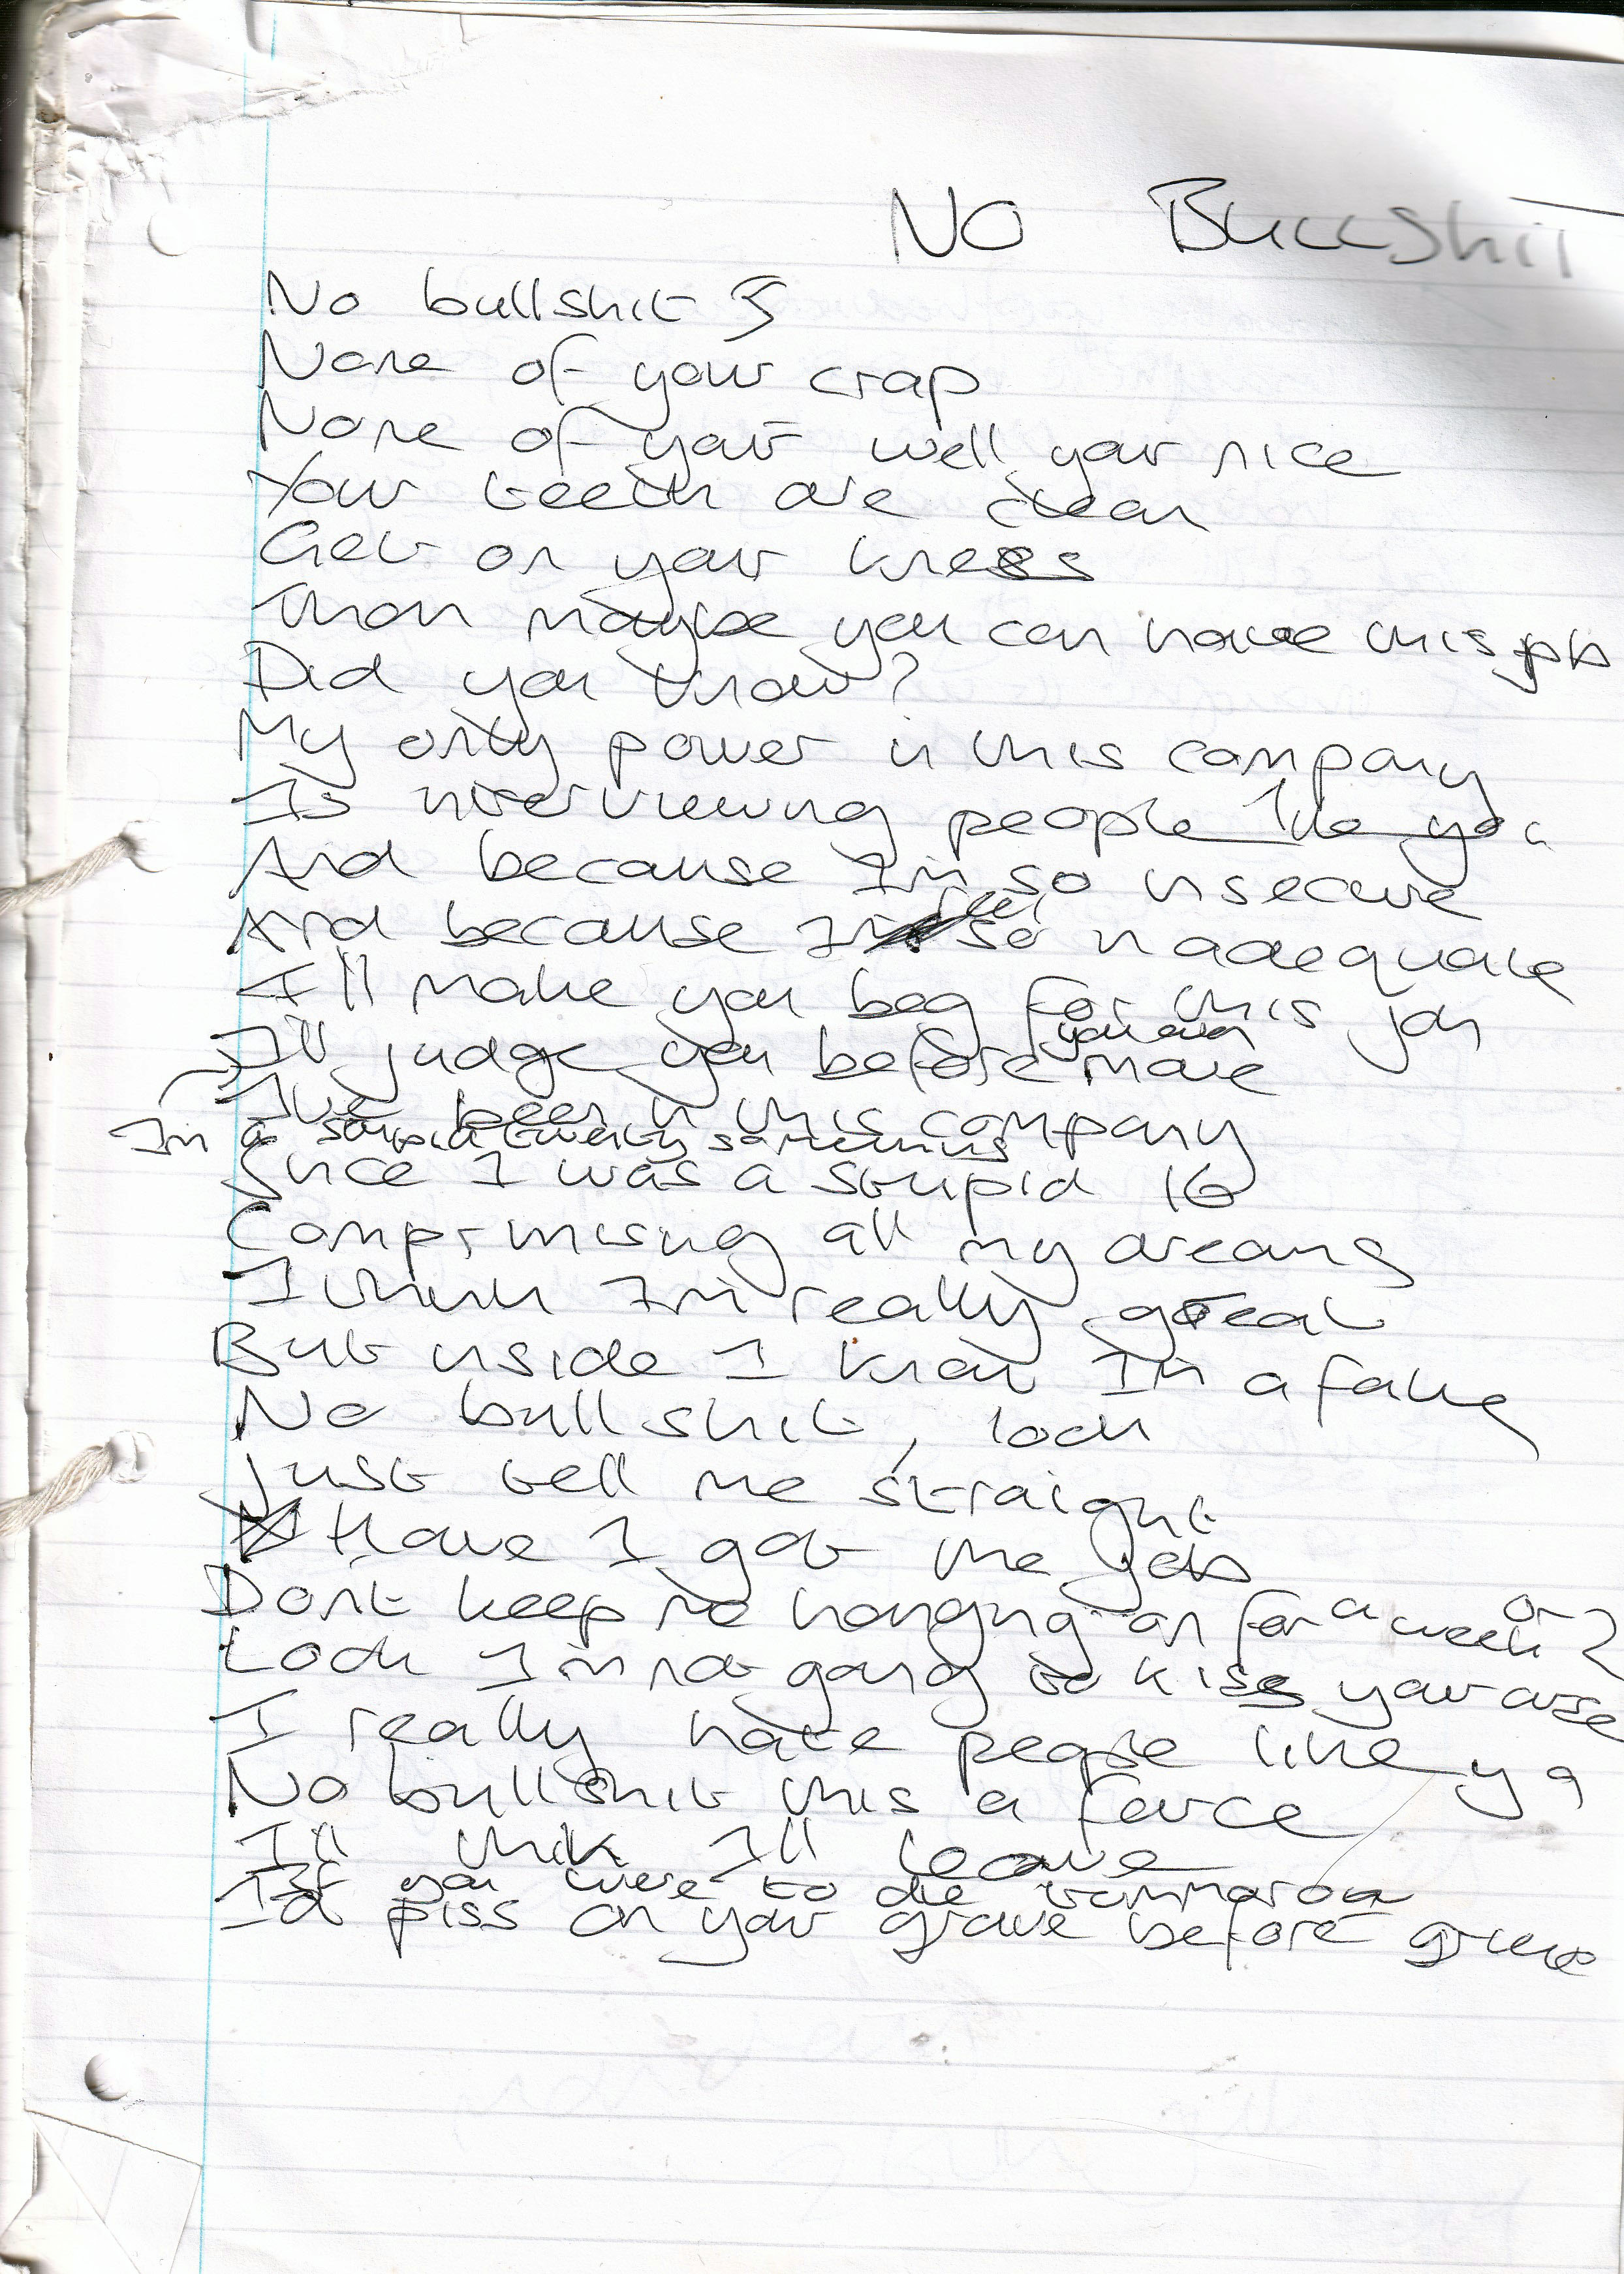 NO Bullshit
No bullshit
None of your crap
None of your well your nice
Your teeth are clean
Get on your knees
Than maybe you can have this job
Did you know?
My only power in this company
Is interviewing people like you
And because I'm so insecure
And because I feel so inadequate
I'll make you beg for this job
I'll judge you before you even move
I've been in this company
Im a stupid twenty something
Since I was a stupid 16
Compromising all my dreams
I think I'm really great
But inside I know Im a fake
No bullshit, look
Just tell me straight
Have I got the job
Don't keep me hanging on for a week or 2
Look I'm not going to kiss your arse
I really hate people like ya
No bullshit this a farce
I'll think I'll leave
If you were to die tommorow
I'd piss on your grave before grieve